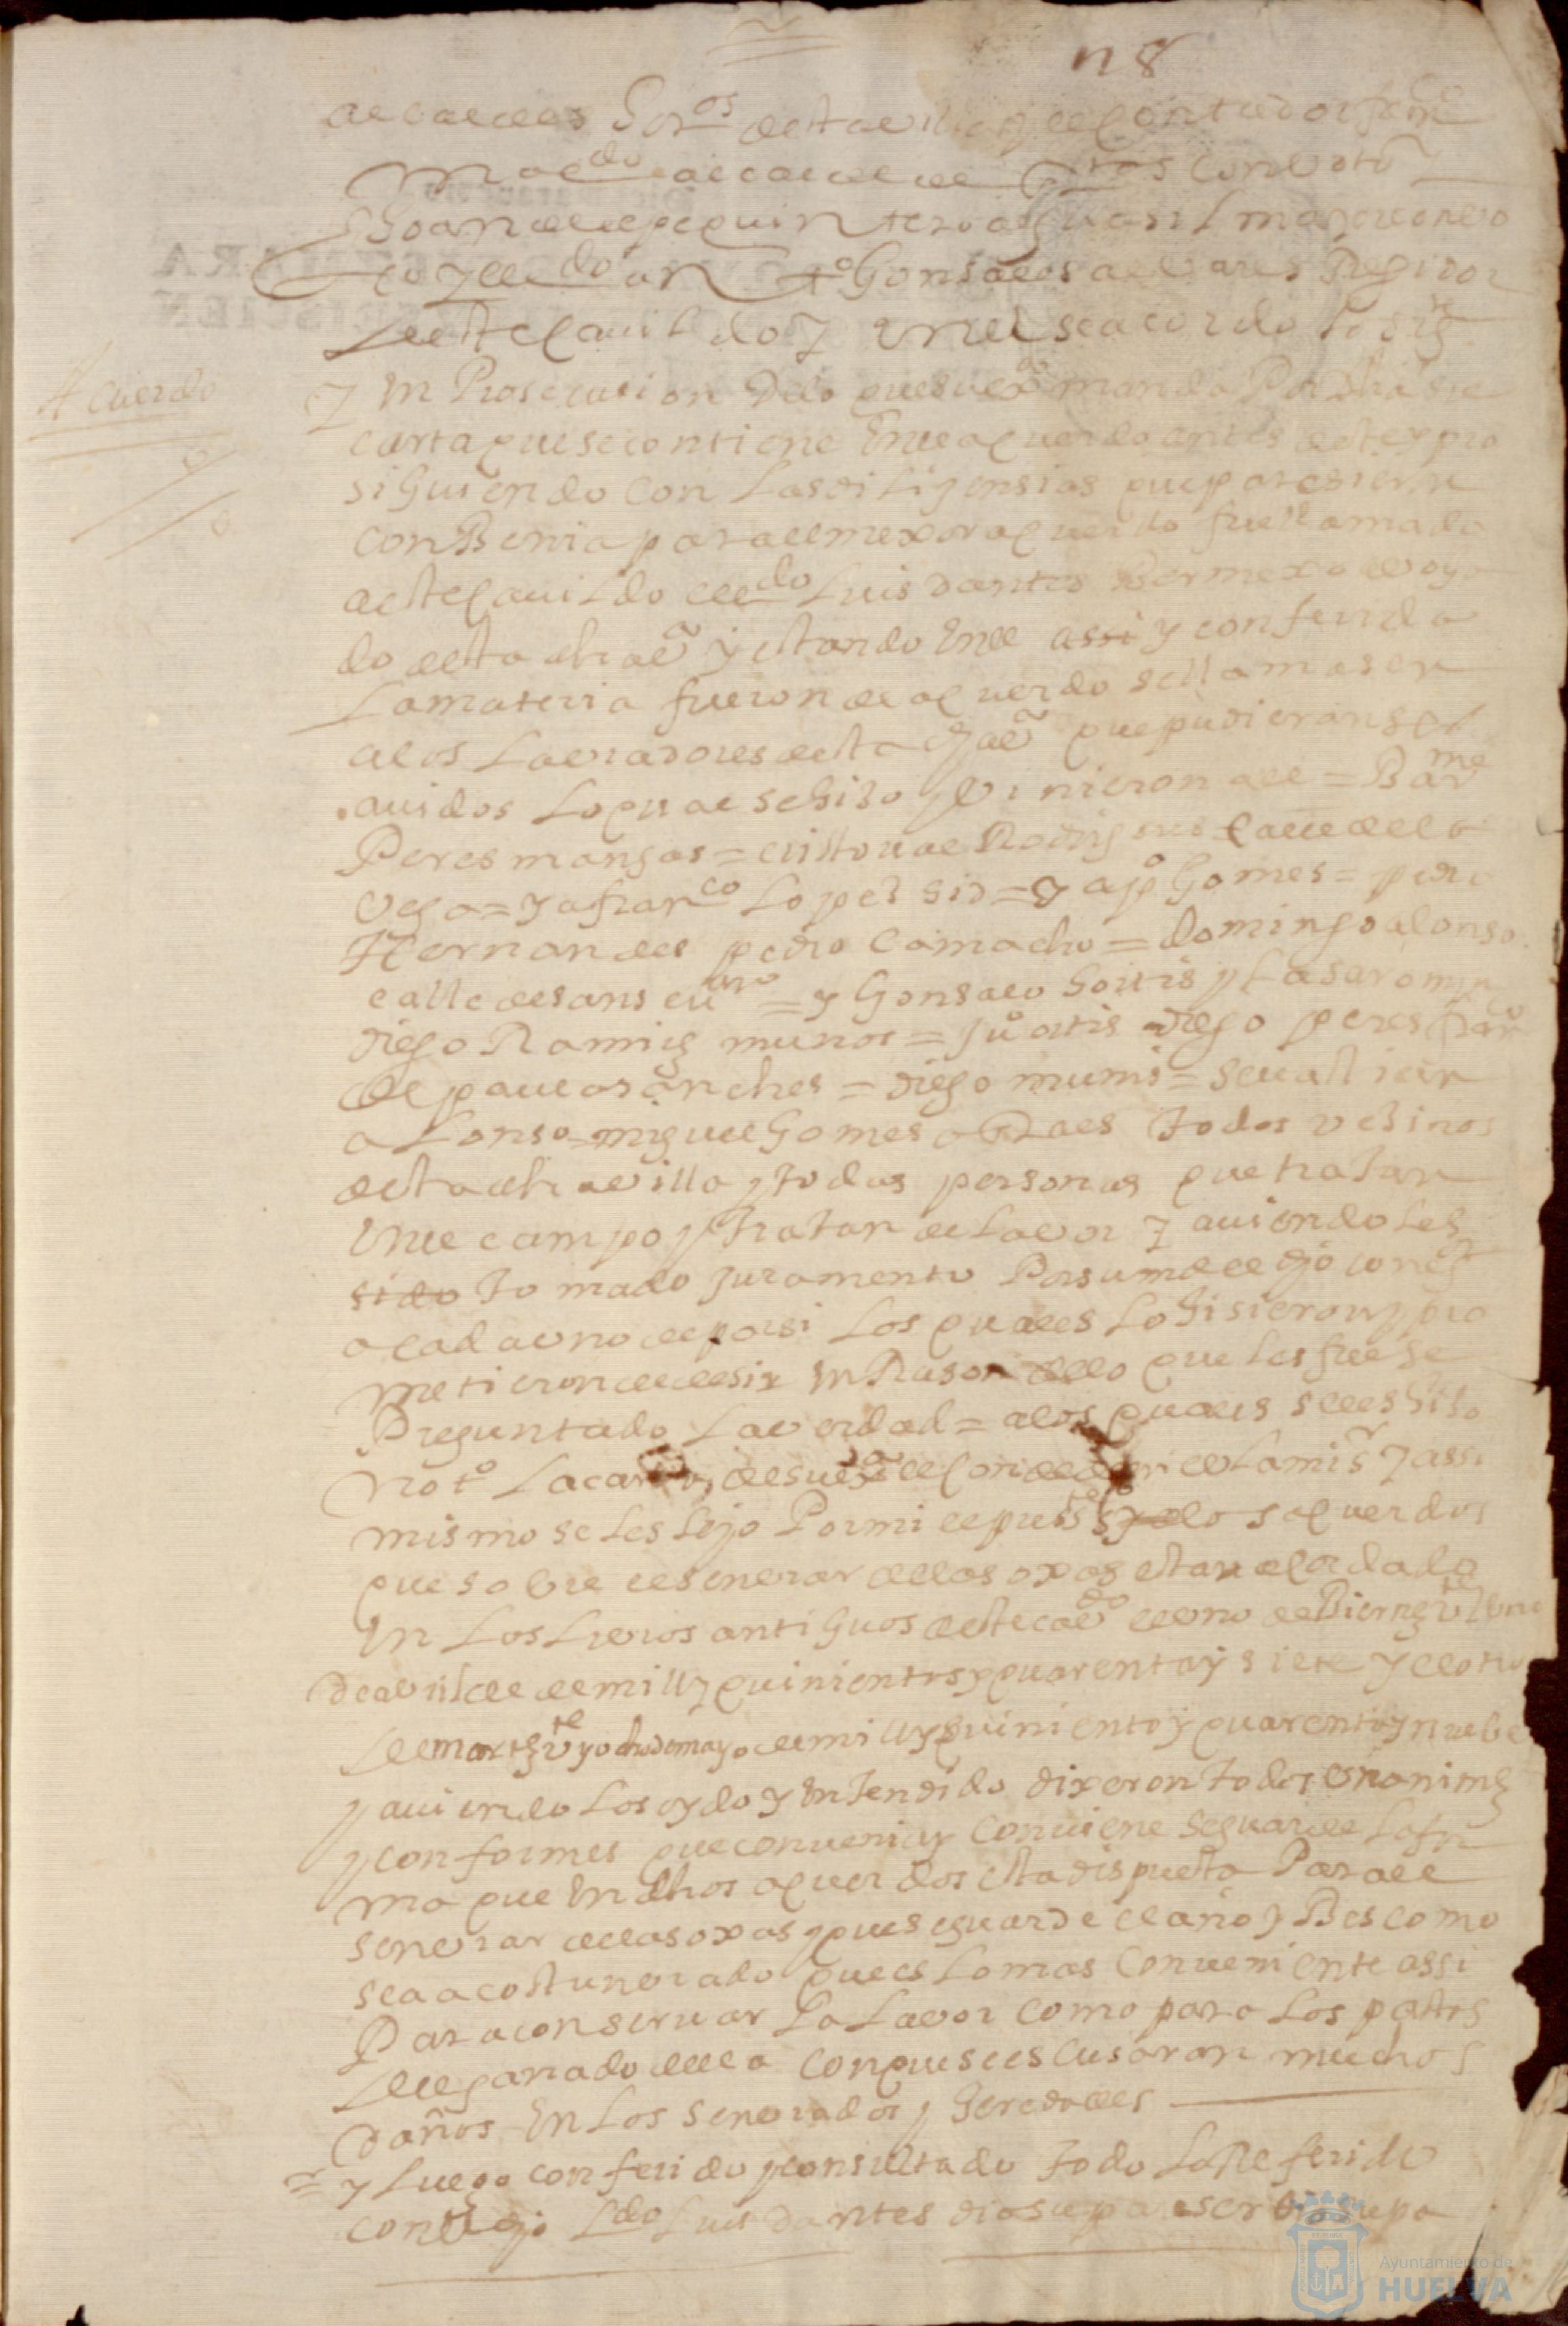 n 8
alcaldes hordos desta villa y el contador franco
maldo alcalde de con voto
Joan de lepe quintero alguasil mayor con vo
to y el do an to Gonsales albares Regidor
deste cavildo y en el se acordo lo sigte
Acuerdo
y en Prosecusion de lo que su exa manda Por dha su
carta que se contiene en el aquerdo antes deste y pro
siguiendo con las diligensias que paresieron
conBenia para el mexor aquerdo fue llamado
a este cavildo el ldo Luis dantes Bermexo avoga
do desta dha va y estando en el assi y conferida
la materia fueron de aquerdo se llamasen
a los Labradores desta dha va que pudieran ser
avidos lo qual se hiso y vinieron a el = Barme
Peres mangas = cristoval Rodrigues calle de la
vega = y a franco Lopes sid = y a po Gomes = pedro
Hernandes pedro Camacho = domingo alonso
calle de sans = y Gonsalo hortis y
diego Ramires munos = ju ortis diego peres
de pavea sanches = diego munis = sevastian
alonso = miguel Gomes todos vesinos
desta dha villa y todas personas que tratan
en el campo y tratan de lavor y aviendoles
sido tomado juramento Por su md el dho corregr
a cada uno de por si los quales lo hisieron y pro
metieron de desir en Rason de lo que les fuese
Preguntado la verdad = a los quales se les hiso
noto la carta de su exa el conde de mi sr y assi
mismo se les leyo Por mi el presste los aquerdos
que sobre el senerar de las oxas estan acordado
en los livros antiguos deste cavdo el uno de Biernes vte y uno
de avril de mill y quinientos y quarenta y siete y el otro
de martes vte y ocho de mayo de mill y quinientos y quarenta y nuebe
y aviendolos oydo y entendido dixeron todos unanimes
y conformes que convenia y conviene se guarde la for
ma que en dhos aquerdos esta dispuesta Para el
senerar de las oxas y que se guarde el año y Bes como
sea acostunbrado que es lo mas conveniente assi
Para conservar la Lavor como para los pastos
del ganado della con que se escusaran muchos
daños en los senerados y heredades
y luego conferido y consultado todo lo Referido
con el dho Ldo Luis dantes dio su pareser supa
Ayuntamiento de
HUELVA